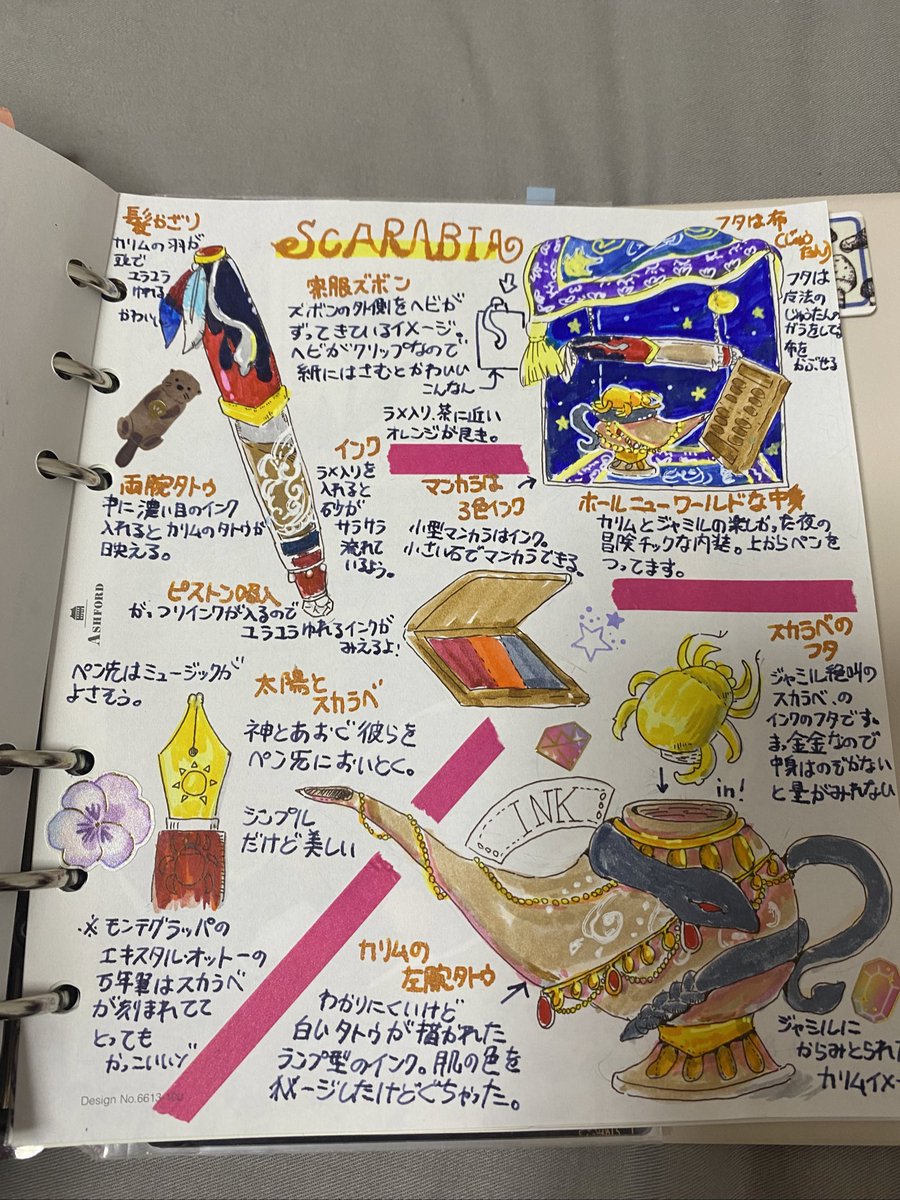 SCARABIA
髪かざり
カリムの羽が
頭で
ユラユラ
ゆれる
かわいい
寮服ズボン
ズボンの外側をヘビが
ずってきているイメージ。
ヘビがクリップなので
紙にはさむとかわいい
こんなん
ラメ入り、茶に近い
オレンジが良き。
フタは布
(じゅう
たん)
フタは
魔法の
じゅうたんの
ガラをしてる
布を
かぶせる
両腕タトゥ
中に濃い目のインク
入れるとカリムのタトゥが
映える。
インク
ラメ入りを
入れると
砂が
サラサラ
流れて
いるよう。
マンカラは
3色インク
小型マンカラはインク。
小さい石でマンカラできる。
ホールニューワールドな中身
カリムとジャミルの楽しかった夜の
冒険チックな内装。上からペンを
つってます。
ピストン吸入
がっつりインクが入るので
ユラユラゆれるインクが
みえるよ!
ASHFORD
ペン先はミュージックが
よさそう。
太陽と
スカラベ
神とあおぐ彼らを
ペン先においとく。
シンプル
だけど美しい
スカラベの
フタ
ジャミル絶叫の
スカラベ、の
インクのフタです。
ま、金金なので
中身はのぞかない
と量がみれない
in!
INK
※モンテグラッパの
エキストラ・オットーの
万年筆はスカラベ
が刻まれてて
とっても
かっこいいゾ
カリムの
左腕タトゥ
わかりにくいけど
白いタトゥが描かれた
ランプ型のインク。肌の色を
イメージしたけどぐちゃった。
ジャミルに
からみとられた
カリムイメー
Design No.6613